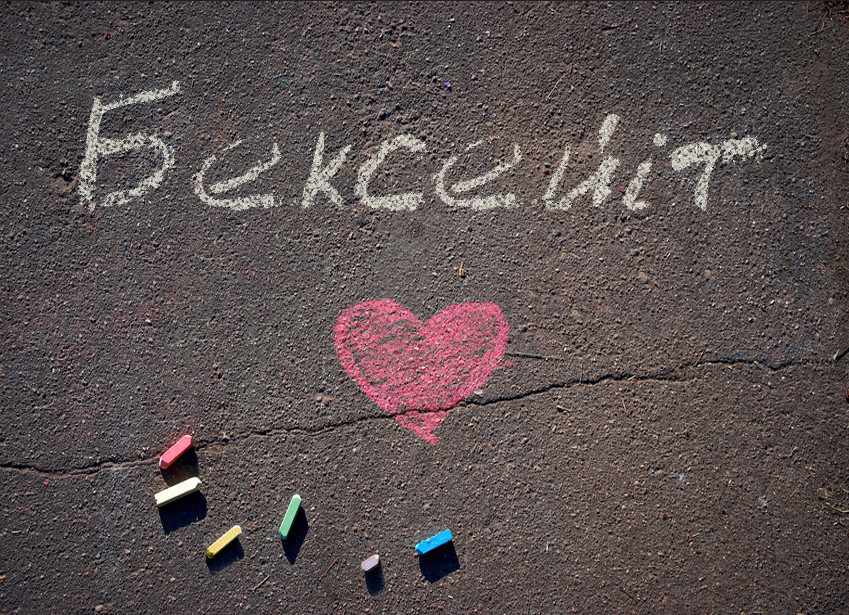 Бексейіт